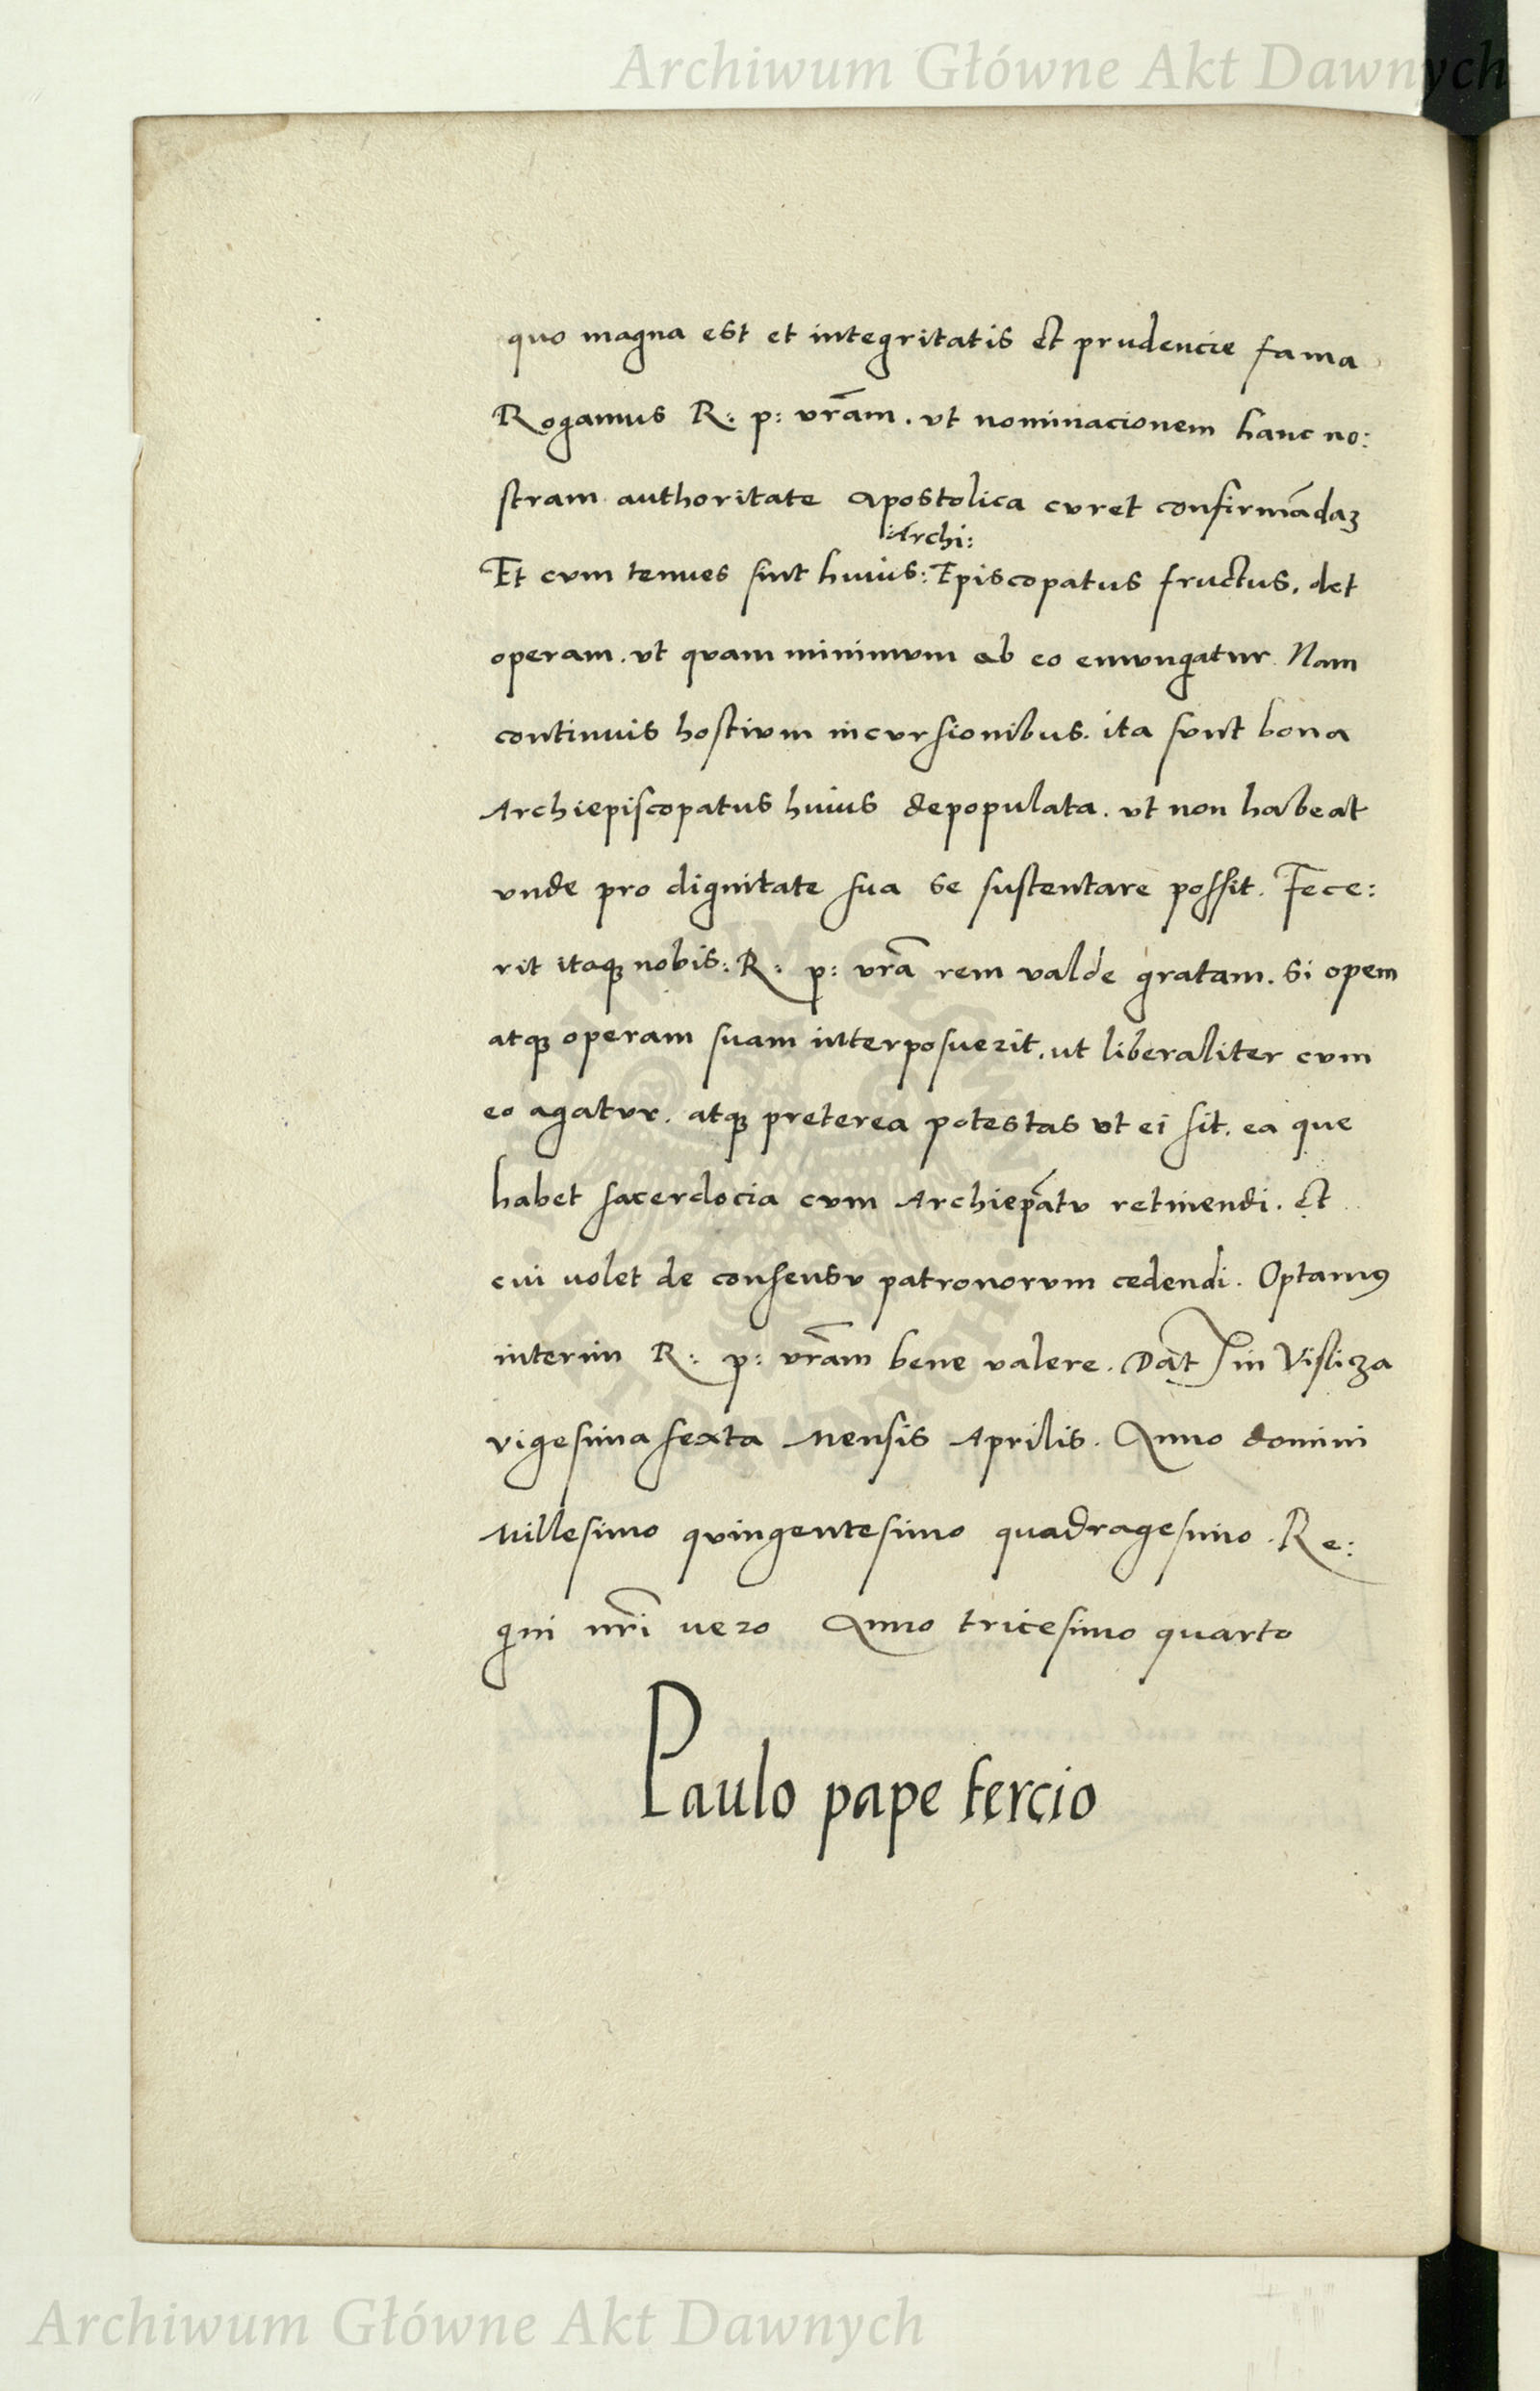 Archiwum Główne Akt Dawnych
quo magna est et integritatis et prudencie fama
Rogamus R: p: vr̃am. vt nominacionem hanc no:
stram authoritate Apostolica curet confirmãdaȝ
:Archi:
Et cum tenues sint huius: Episcopatus fructus, det
operam. vt quam minimum ab eo emungatur. Nam
continuis hostium incursionibus. ita sunt bona
Archiepiscopatus huius depopulata. vt non habeat
unde pro dignitate sua se sustentare possit. Fece:
rit itaqꝫ nobis: R: p: vr̃a rem valde gratam. Si opem
atqꝫ operam suam interposuerit, ut liberaliter cum
eo agatur. atqꝫ preterea potestas vt ei sit. ea que
habet sacerdocia cum Archiep̃atu retinendi. Et
cui uolet de consensu patronorum cedendi. Optamꝰ
interim R: p: vr̃am bene valere. Dat̃ in Visliza
vigesima sexta Mensis Aprilis. Anno domini
Millesimo quingentesimo quadragesimo. Re:
gni nr̃i uero Anno tricesimo quarto
Paulo pape tercio
Archiwum Główne Akt Dawnych